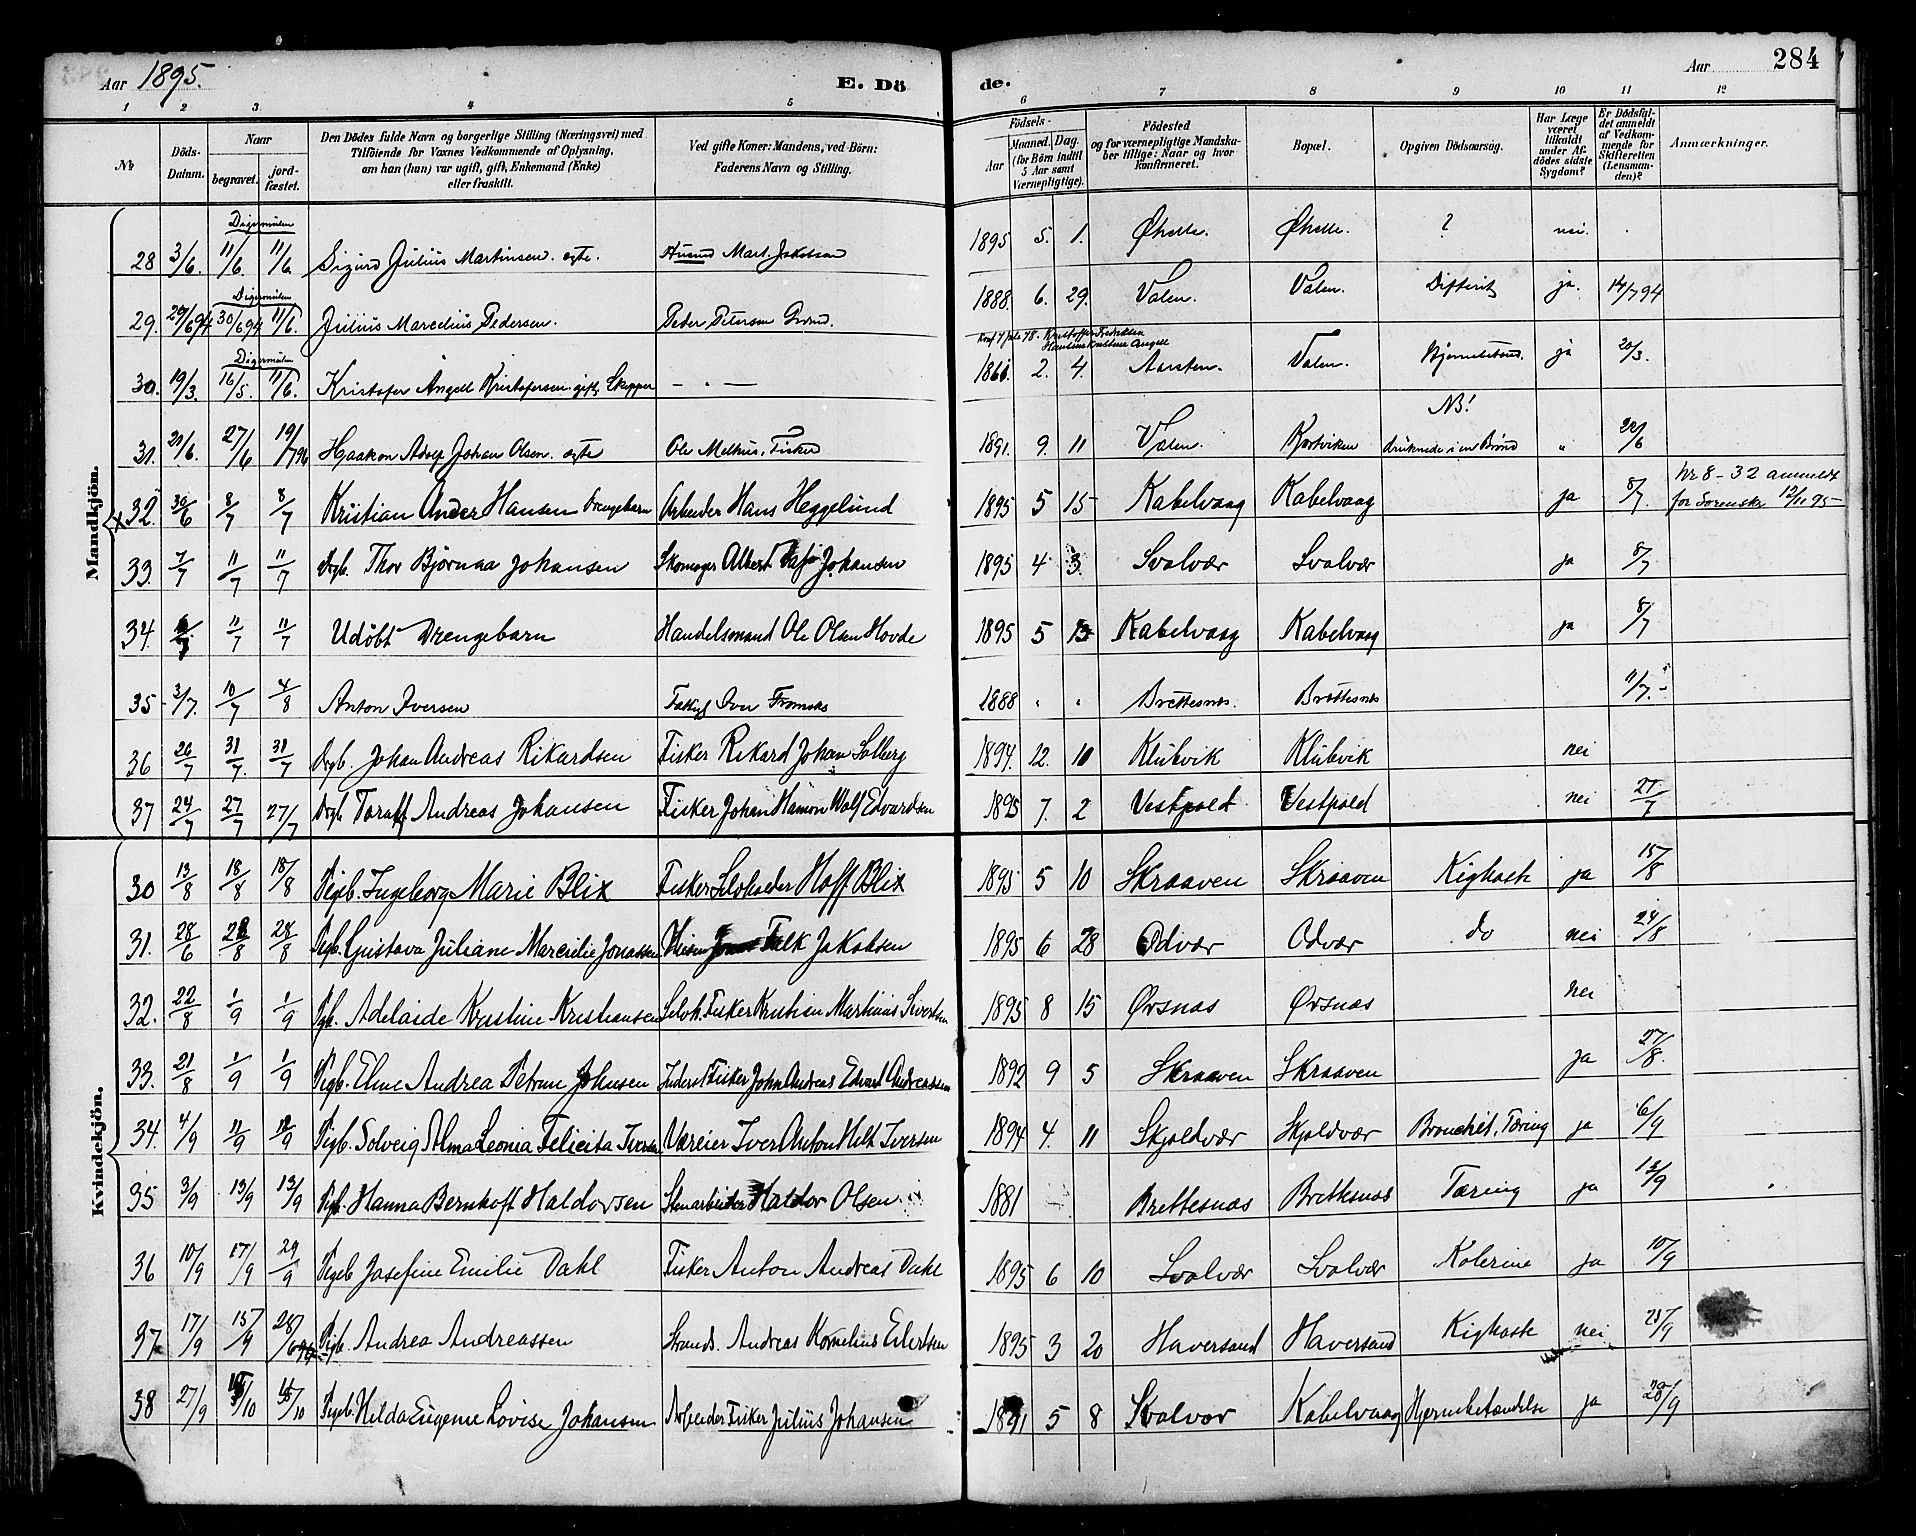 Aar 1895. E. Dö de. Aar 284
1 2 3 4 5 6 7 8 9 10 11 12
№ Döds-Datum. Naar begravet. jordfæstet. Den Dödes fulde Navn og borgerlige Stilling (Næringsvei) med Tilföiende for Voxnes Vedkommende af Oplysning, om han (hun) var ugift, gift, Enkemand (Enke) eller fraskilt. Ved gifte Koner: Mandens, ved Börn: Faderens Navn og Stilling. Födsels- Aar Maaned. Dag. (for Börn indtil 5 Aar samt Værnepligtige). Födested og for værnepligtige Mandskaber tillige: Naar og hvor konfirmeret. Bopæl. Opgiven Dödsaarsag. Har Læge været tilkaldt under Afdödes sidste Sygdom? Er Dödsfaldet anmeldt af Vedkommende for Skifteretten (Lensmanden)? Anmærkninger.
Mandkjön.
Digermulen
28 3/6. 11/6 11/6 Sigurd Julius Martinsen. ægte. Husmd Mart. Jakobsen 1895 5. 1. Øhelle. Øhelle. ? nei.
Digermulen
29. 29/6 94 30/6 94 11/6. Julius Marcelius Pedersen. Peder Petersen 1888. 6. 29. Valen. Valen. Difterit ja. 14/7 94
Digermulen
30. 19/3. 16/5. 11/6. Kristofer Angell Kristofersen gift, Skipper — . — 1861. 2. 4. Aarsten. Valen. ja 20/3.
NB!
31. 27/6 19/7 96 Haakon Adolf Johan Olsen. ægte Ole Melkus, Fisker 1891. 9. 11 Valen. druknede i en Brønd " 22/6
x 32. 30/6 8/7 8/7 Kristian Ander Hansen Drengebarn Arbeider Hans Heggelund 1895 5 15 Kabelvaag Kabelvaag ja 8/7. Nr 8-32 anmeldt for Sorenskr. 12/11 95
33. 7/7 11/7 11/7 Drgb. Thor Bjørnaa Johansen Skomager Albert Johansen 1895 4 3 Svolvær Svolvær ja 8/7
34. 11/7 11/7 Udöbt Drengebarn Handelsmand Ole Olsen Hovde 1895 5 Kabelvaag Kabelvaag ja 8/7
35 3/7. 10/7 4/8 Anton Iversen Iver 1888 " " Brettesnes. Brettesnes 11/7.-
36 26/7 31/7. 31/7 Drgb. Johan Andreas Rikardsen Fisker Rikard Johan Solberg 1894. 12. 10 Klubvik Klubvik nei
37 24/7 27/7 27/7 Drgb Toralf Andreas Johansen Fisker Johan Hamon Wolf Edvardsen 1895 7. 2 Vestpold Vestpold nei 27/7
Kvindekjön.
30 13/8 18/8 18/8 Pigb. Ingeborg Marie Blix Fisker Hoff Blix 1895 5 10 Skraaven Skraaven Kighoste ja 15/8
31. 28/6 28/8 28/8 Pigb. Gustava Juliane Marcilie Jonassen Falk Jakobsen 1895 6 28 Odvær Odvær do nei 24/8
32. 22/8 1/9 1/9 Pgb. Adelaide Kristine Kristiansen Selvh. Fisker Kristian Martinus Sivertsen 1895 8 15 Ørsnæs Ørsnæs nei
33. 21/8 1/9 1/9 Pigb. Eline Andrea Petrun Johnsen Fisker John Andreas Edvard Andreassen 1892 9 5 Skraaven Skraaven ja 27/8.
34. 4/9 11/9 Pigb. Solveig Alma Leonia Felicita Iversen Væreier Iver Anton Hilt Iversen 1894 4. 11 Skjoldvær Skjoldvær Bronchit, Tæring ja 6/9
35 3/9 13/9 13/9 Pigb. Hanna Bernhoft Haldorsen Stenarbeider Haldor Olsen 1881 Brettesnæs Brettesnæs Tæring ja 13/9
36 10/9 17/9 29/9 Pigeb Josefine Emilie Dahl Fisker Anton Andreas Dahl 1895 6 10 Svolvær Svolvær Kolerine ja 10/9
37 17/9 15/9 28/6 96 Pigb. Andrea Andreassen Strands. Andreas Kornelius Eilertsen 1895 3 20 Haversand Haversand Kighoste nei 23/9
38 27/9 Pigb. Hilda Eugenie Lovise Johansen Arbeider Fisker Julius Johansen 1891 5 8 Svolvær Kabelvaag Hjernebetændelse ja 28/9